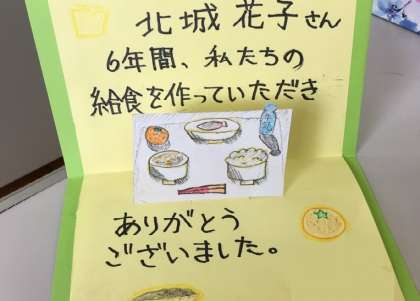 北城 花子さん
6年間、私たちの
給食を作っていただき
ありがとう
ございました。